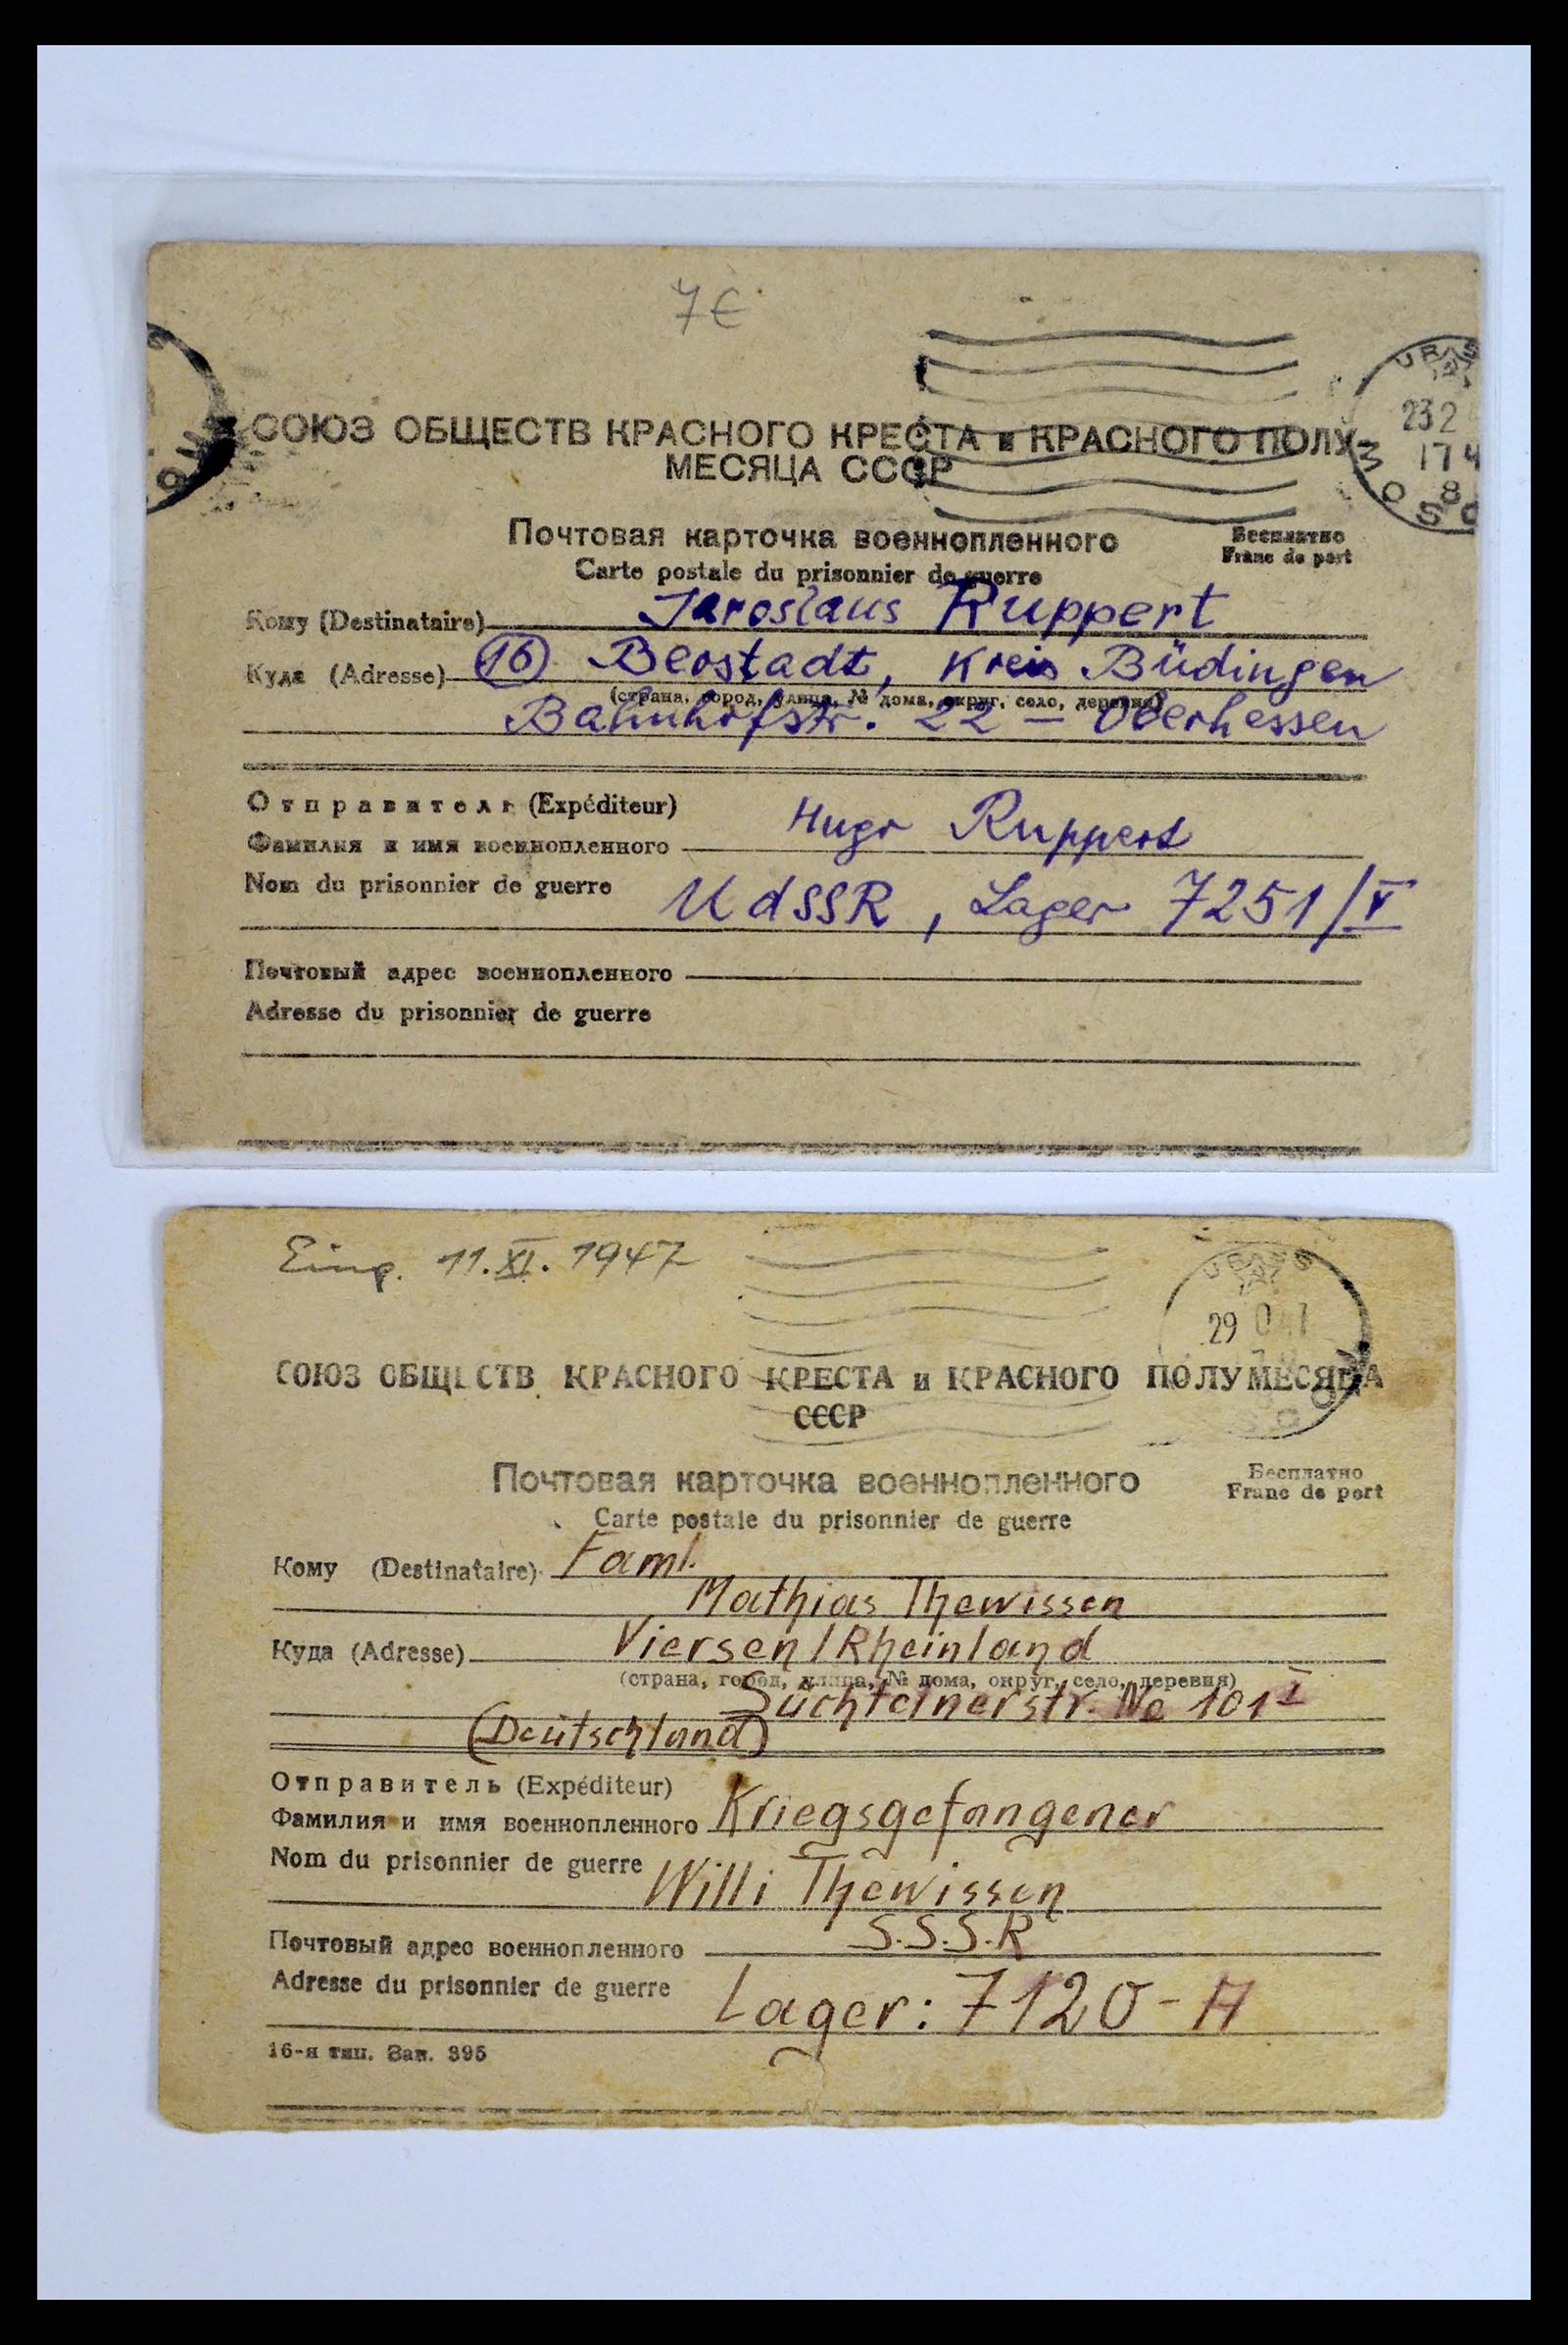 7€
СОЮЗ ОБЩЕСТВ КРАСНОГО КРЕСТА и КРАСНОГО ПОЛУ
МЕСЯЦА СССР
23 2
17 4
8
Почтовая карточка военнопленного
Бесплатно
Carte postale du prisonnier de guerre
Franc de port
Кому (Destinataire) Jaroslaus Ruppert
Куда (Adresse) (16) Berstadt, Kreis Büdingen
(страна, город, улица, № дома, округ, село, деревня)
Bahnhofstr. 22 – Oberhessen
Отправитель (Expéditeur)
Фамилия и имя военнопленного Hugo Ruppert
Nom du prisonnier de guerre
UdSSR, Lager 7251/V
Почтовый адрес военнопленного
Adresse du prisonnier de guerre
Eing. 11.XI.1947
29
СОЮЗ ОБЩЕСТВ КРАСНОГО КРЕСТА и КРАСНОГО ПОЛУМЕСЯЦА
СССР
Почтовая карточка военнопленного
Бесплатно
Franc de port
Carte postale du prisonnier de guerre
Кому (Destinataire) Faml.
Mathias Thewissen
Куда (Adresse) Viersen/Rheinland
(страна, город, улица, № дома, округ, село, деревня)
Süchtelnerstr. No 101 I
(Deutschland)
Отправитель (Expéditeur)
Фамилия и имя военнопленного Kriegsgefangener
Nom du prisonnier de guerre
Willi Thewissen
S.S.S.R
Почтовый адрес военнопленного
Adresse du prisonnier de guerre Lager: 7120-A
16-я тип. Зак. 395